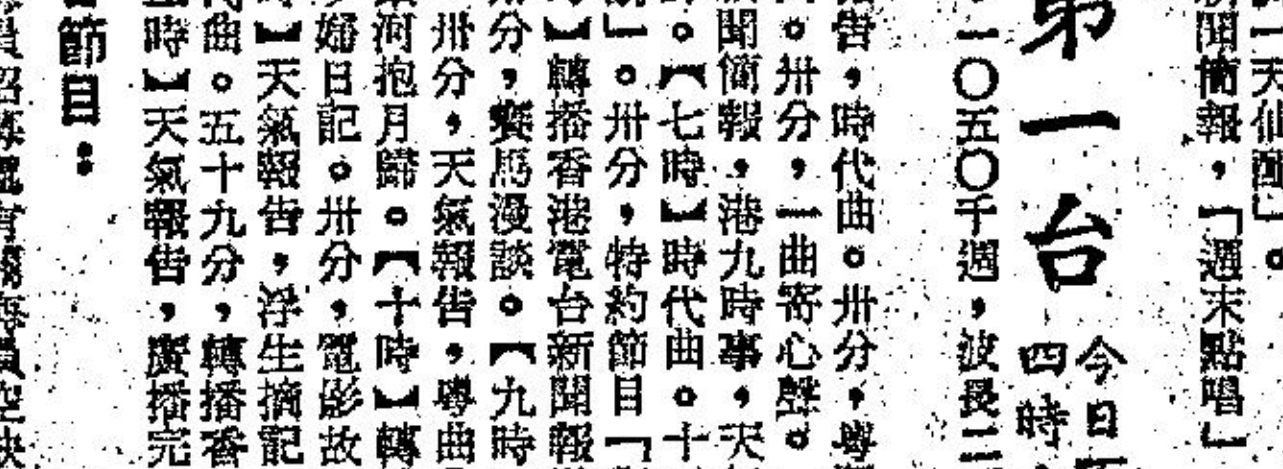 天仙配」。
新聞簡報,「週末點唱」
第一台
今日
四時
一〇五〇千週,波長二
告,時代曲。卅分,粵
。卅分,一曲寄心聲。
聞簡報,港九時事,天
。【七時】時代曲。十
」。卅分,特約節目「
】轉播香港電台新聞報
分,賽馬漫談。【九時
卅分,天氣報告,粵曲
河抱月歸。【十時】轉
婦日記。卅分,電影故
】天氣報告,浮生摘記
曲。五十九分,轉播香
時】天氣報告,廣播完
節目:
員招募